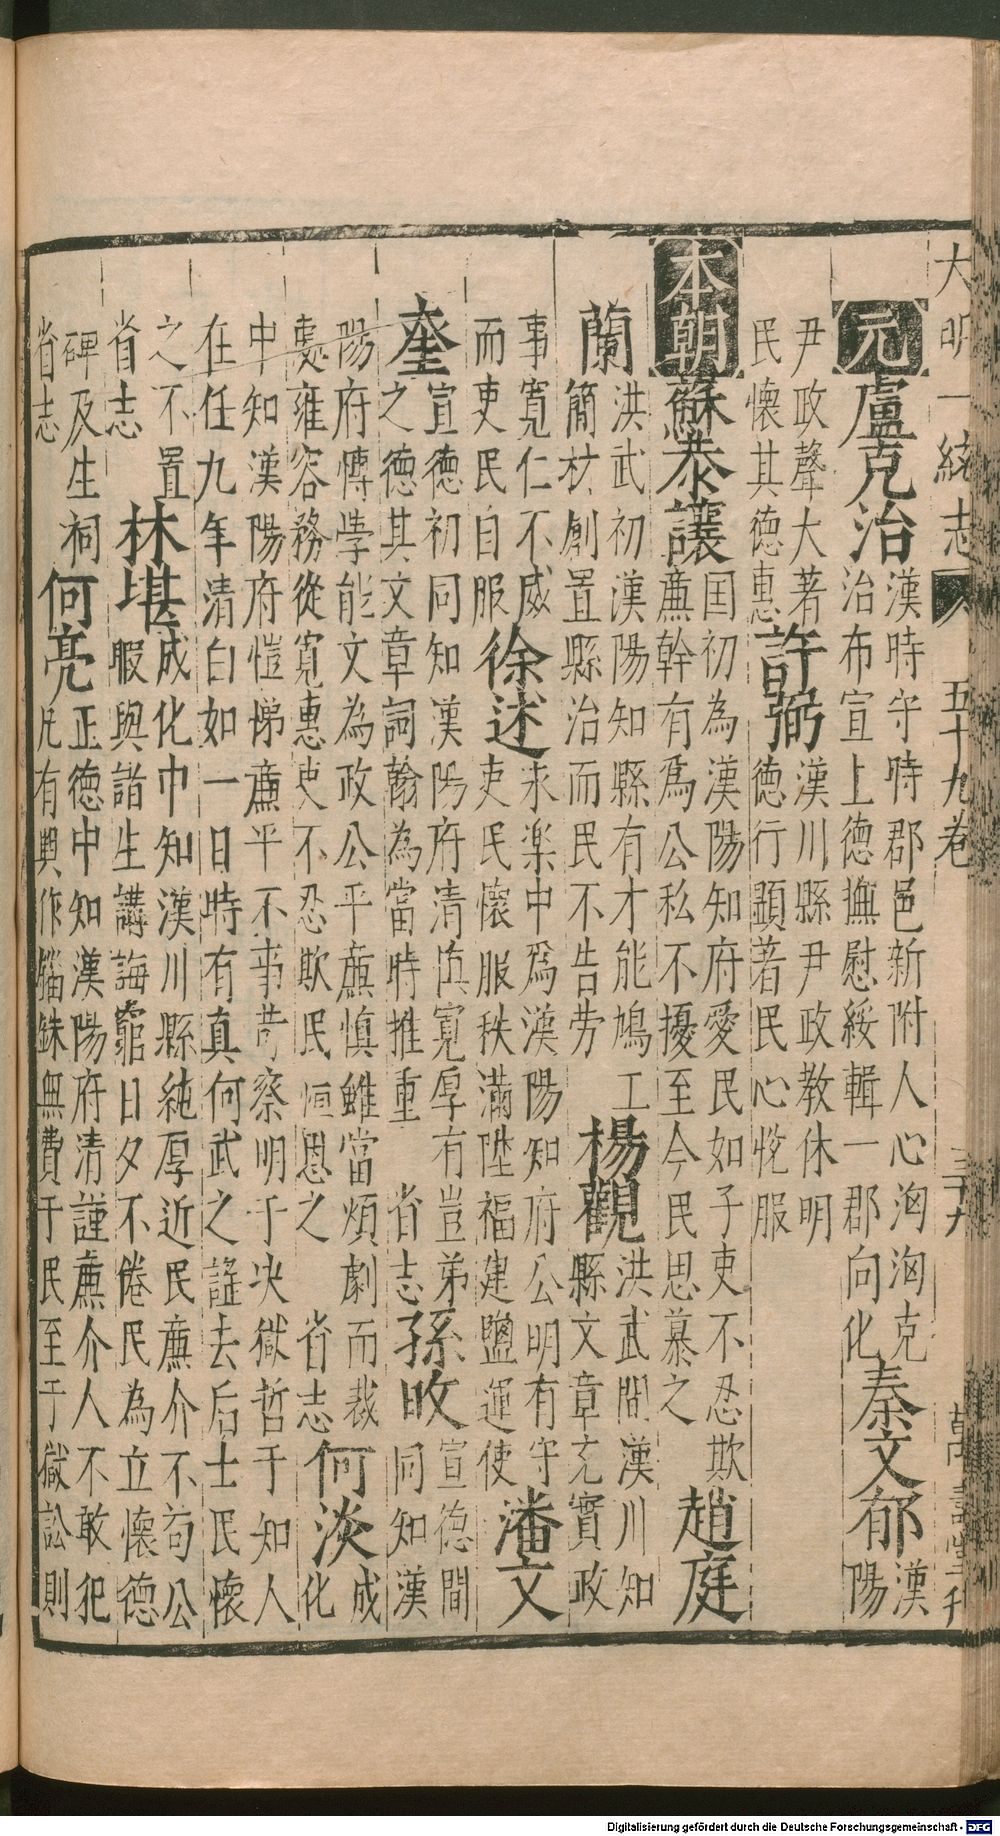 大明一統志 五十九卷 三十九 萬壽堂刊
元 盧克治 漢時守時郡邑新附人心洶洶克
治布宣上德撫慰綏輯一郡向化 秦文郁 漢
陽
尹政聲大著
民懷其德惠 許弼 漢川縣尹政教休明
德行顯著民心悅服
本朝 蘇泰讓 国初為漢陽知府愛民如子吏不忍欺
亷幹有爲公私不擾至今民思慕之 趙庭
蘭 洪武初漢陽知縣有才能鳩工
簡材創置縣治而民不告劳 楊觀 洪武間漢川知
縣文章充實政
事寬仁不威
而吏民自服 徐述 永楽中爲漢陽知府公明有守
吏民懷服秩滿陞福建鹽運使 潘文
奎 宣德初同知漢陽府清慎寬厚有豈弟
之德其文章詞翰為當時推重 省志 孫昳 宣德間
同知漢
陽府愽學能文為政公平亷慎雖當煩劇而裁
處雍容務從寬惠吏不忍欺民恒思之 省志 何淡 成
化
中知漢陽府愷悌亷平不事苛察明于决獄哲于知人
在任九年清白如一日時有真何武之謡去后士民懷
之不置
省志 林堪 成化中知漢川縣純厚近民亷介不苟公
暇與諸生講誨竟日夕不倦民為立懷德
碑及生祠
省志 何亮 正德中知漢陽府清謹亷介人不敢犯
凡有興作錙銖無費于民至于獄訟則
Digitalisierung gefördert durch die Deutsche Forschungsgemeinschaft - DFG